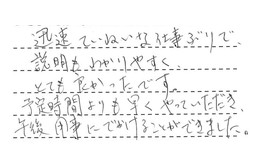 迅速ていねいな仕事ぶりで、
説明もわかりやすく、
とても良かったです。
予定時間よりも早くやっていただき、
午後用事にでかけることができました。